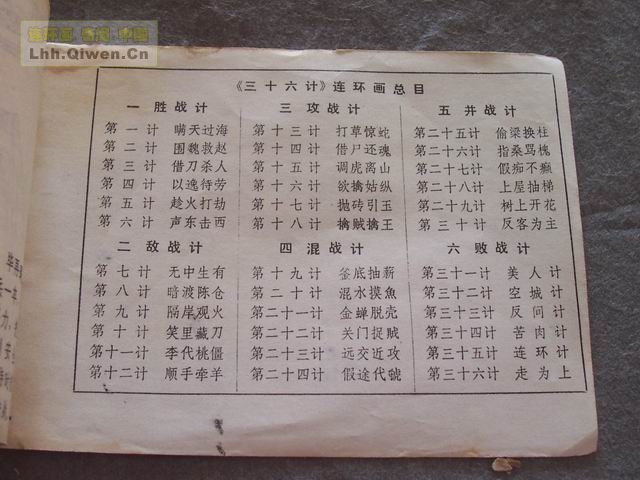 连环画 香河 中国
Lhh.Qiwen.Cn
《三十六计》连环画总目
一 胜战计
第一计 瞒天过海
第二计 围魏救赵
第三计 借刀杀人
第四计 以逸待劳
第五计 趁火打劫
第六计 声东击西
二 敌战计
第七计 无中生有
第八计 暗渡陈仓
第九计 隔岸观火
第十计 笑里藏刀
第十一计 李代桃僵
第十二计 顺手牵羊
三 攻战计
第十三计 打草惊蛇
第十四计 借尸还魂
第十五计 调虎离山
第十六计 欲擒姑纵
第十七计 抛砖引玉
第十八计 擒贼擒王
四 混战计
第十九计 釜底抽薪
第二十计 混水摸魚
第二十一计 金蝉脱壳
第二十二计 关门捉贼
第二十三计 远交近攻
第二十四计 假途伐虢
五 并战计
第二十五计 偷梁换柱
第二十六计 指桑骂槐
第二十七计 假痴不癫
第二十八计 上屋抽梯
第二十九计 树上开花
第三十计 反客为主
六 败战计
第三十一计 美人计
第三十二计 空城计
第三十三计 反间计
第三十四计 苦肉计
第三十五计 连环计
第三十六计 走为上